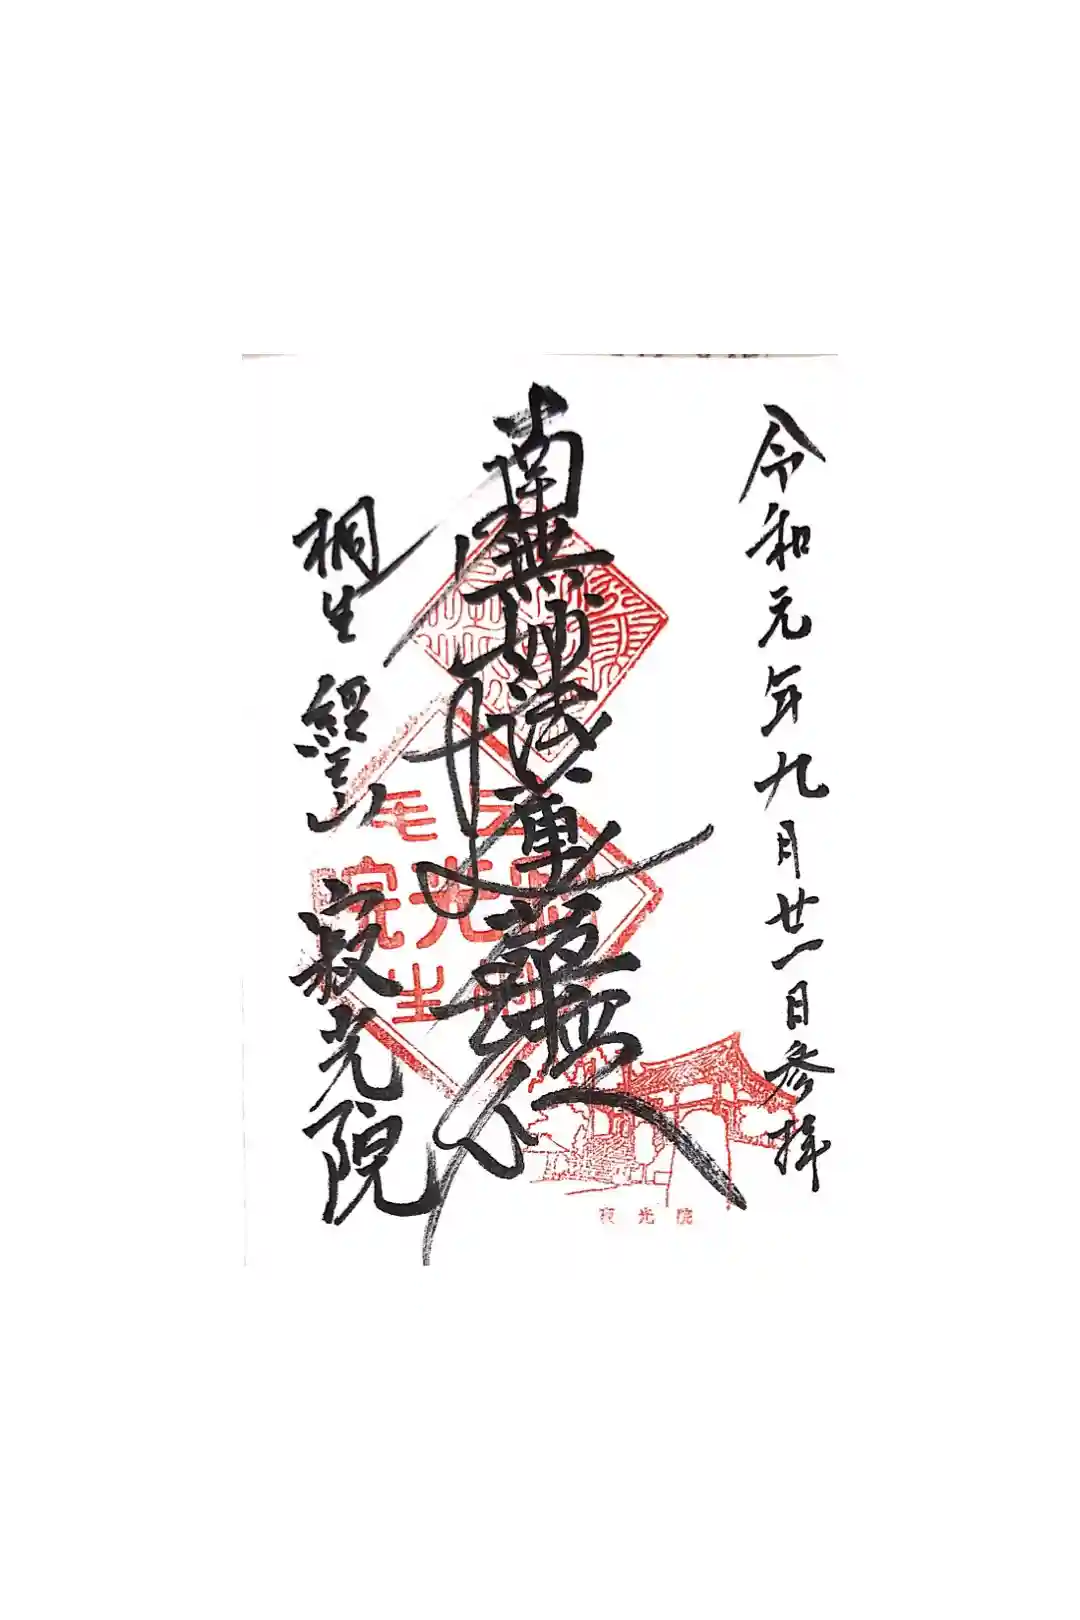 令和元年九月廿一日参拝
南無妙法蓮華経
桐生 經王山 寂光院
上毛
寂光院
桐生
寂光院